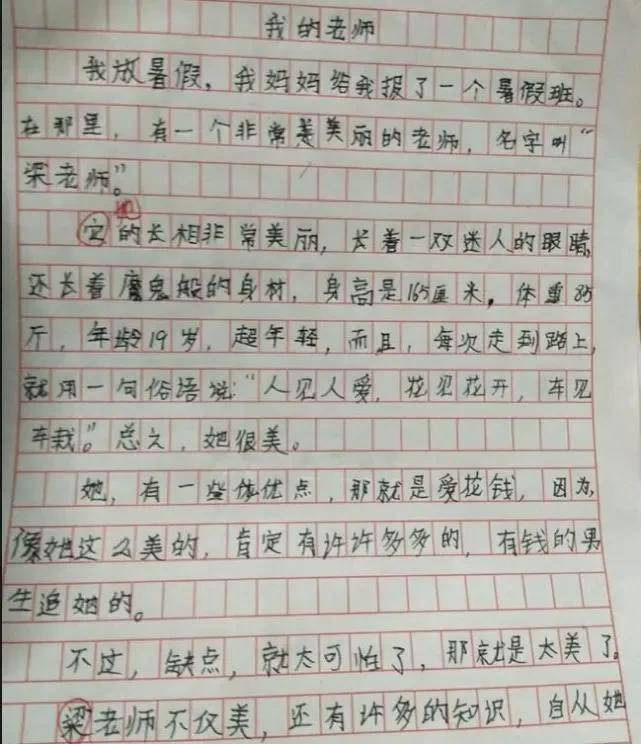 我的老师
我放暑假，我妈妈给我报了一个暑假班。
在那里，有一个非常美丽的老师，名字叫“
梁老师”。
她
它的长相非常美丽，长着一双迷人的眼睛，
还长着魔鬼般的身材，身高是165厘米，体重85
斤，年龄19岁，超年轻，而且，每次走到路上，
就用一句俗语说：“人见人爱，花见花开，车见
车栽”。总之，她很美。
她，有一些优点，那就是爱花钱，因为，
像她这么美的，肯定有许许多多的，有钱的男
生追她的。
不过，缺点，就太可怕了，那就是太美了。
梁老师不仅美，还有许多的知识，自从她